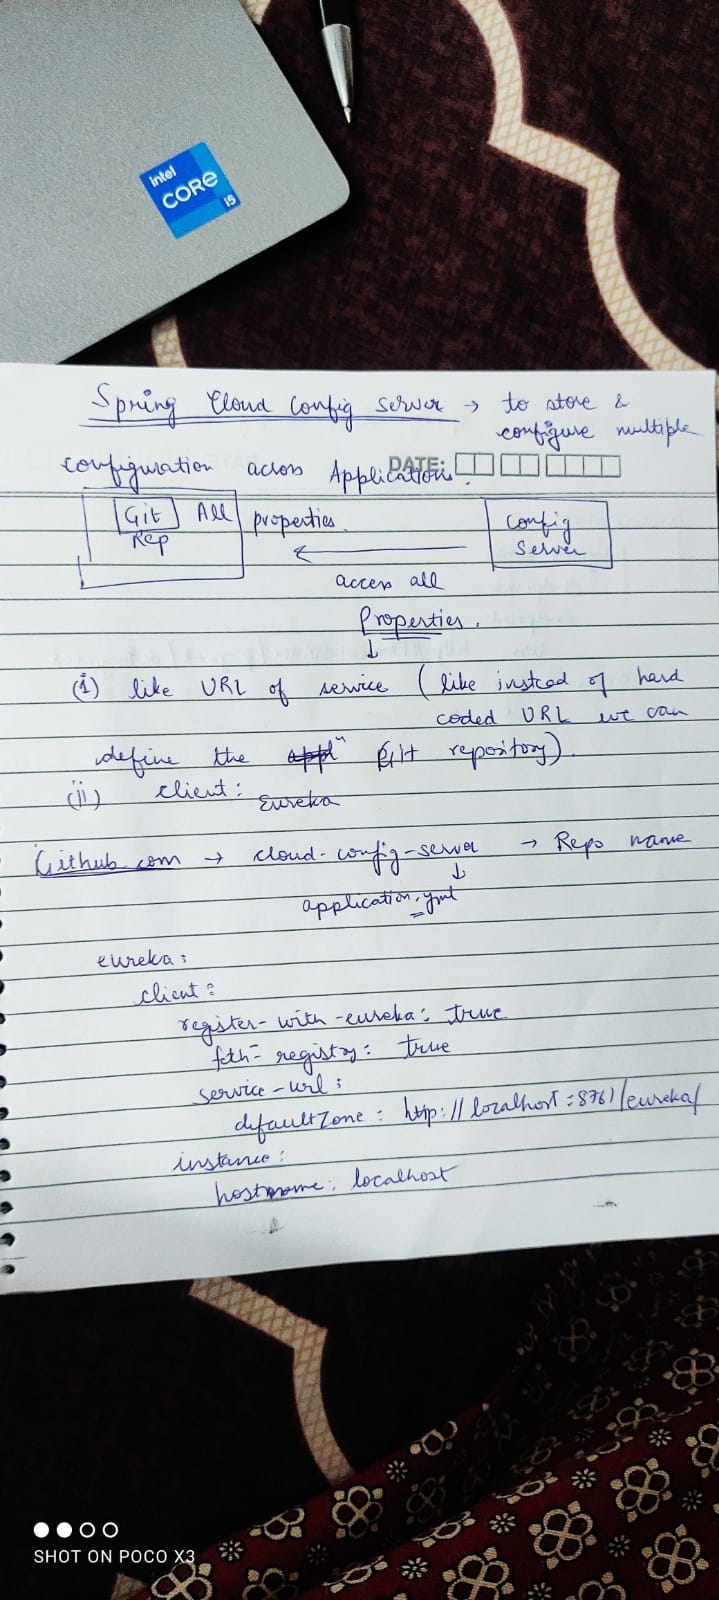 intel
CORE
i5
Spring Cloud Config Server → to store &
configure multiple
configuration across Applications.
DATE:
Git All properties.
Rep
Config
Server
access all
Properties.
(i) like URL of service (like instead of hard
coded URL we can
define the Git repository).
(ii) client:
Eureka
Github.com → cloud-config-server → Repo name
application.yml
eureka:
client:
register-with-eureka: true
feth-registry: true
service-url:
defaultZone: http://localhost:8761/eureka/
instance:
hostname: localhost
SHOT ON POCO X3